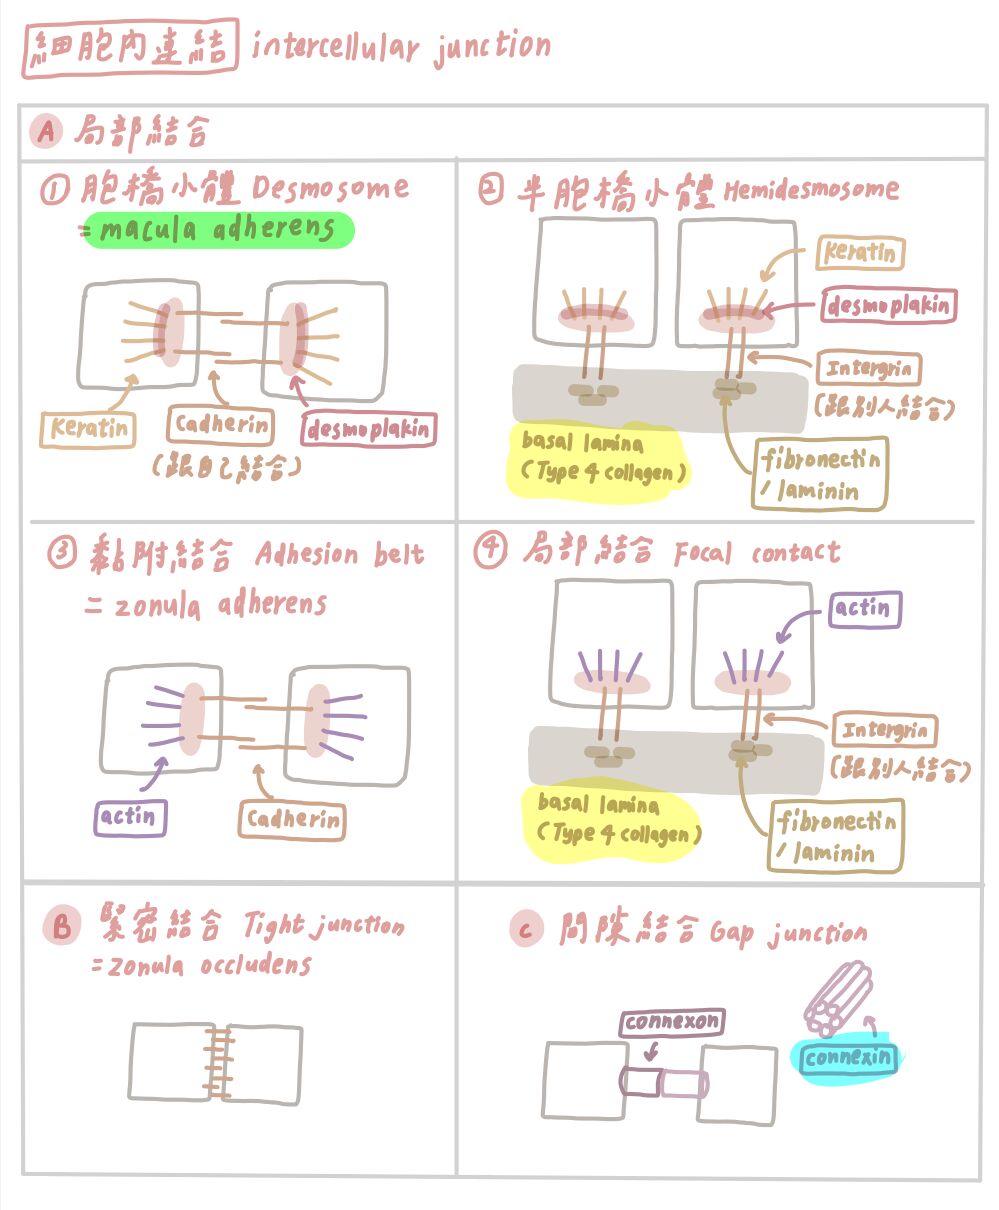 細胞內連結 intercellular junction
A 局部結合
① 胞橋小體 Desmosome
= macula adherens
keratin
Cadherin
desmoplakin
(跟自己結合)
② 半胞橋小體 Hemidesmosome
keratin
desmoplakin
Intergrin
(跟別人結合)
basal lamina
(Type 4 collagen)
fibronectin
/laminin
③ 黏附結合 Adhesion belt
= zonula adherens
actin
Cadherin
④ 局部結合 Focal contact
actin
Intergrin
(跟別人結合)
basal lamina
(Type 4 collagen)
fibronectin
/laminin
B 緊密結合 Tight junction
= zonula occludens
C 間隙結合 Gap junction
connexon
connexin